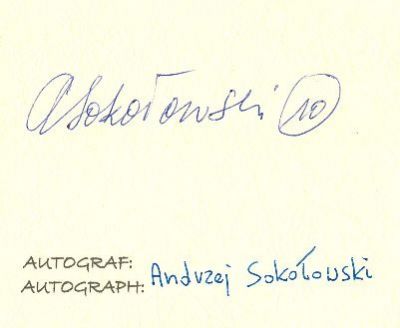 ASokołowski 10
AUTOGRAF:
AUTOGRAPH: Andrzej Sokołowski